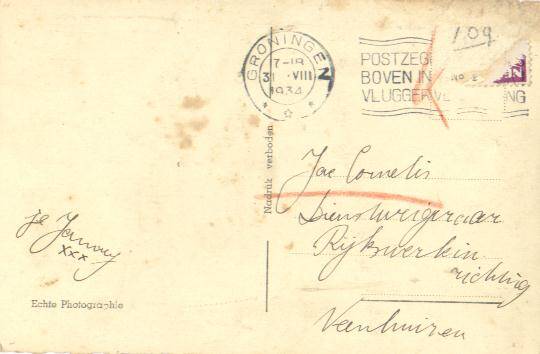 GRONINGEN
17-18
31 VIII
1934
POSTZEG
BOVEN IN
VLUGGER VE NG
109
No 2
Nadruk verboden
Jac Cornelis
Dienstweigeraar
Rijkswerkin
richting
Veenhuizen
je
xxx
Echte Photographie